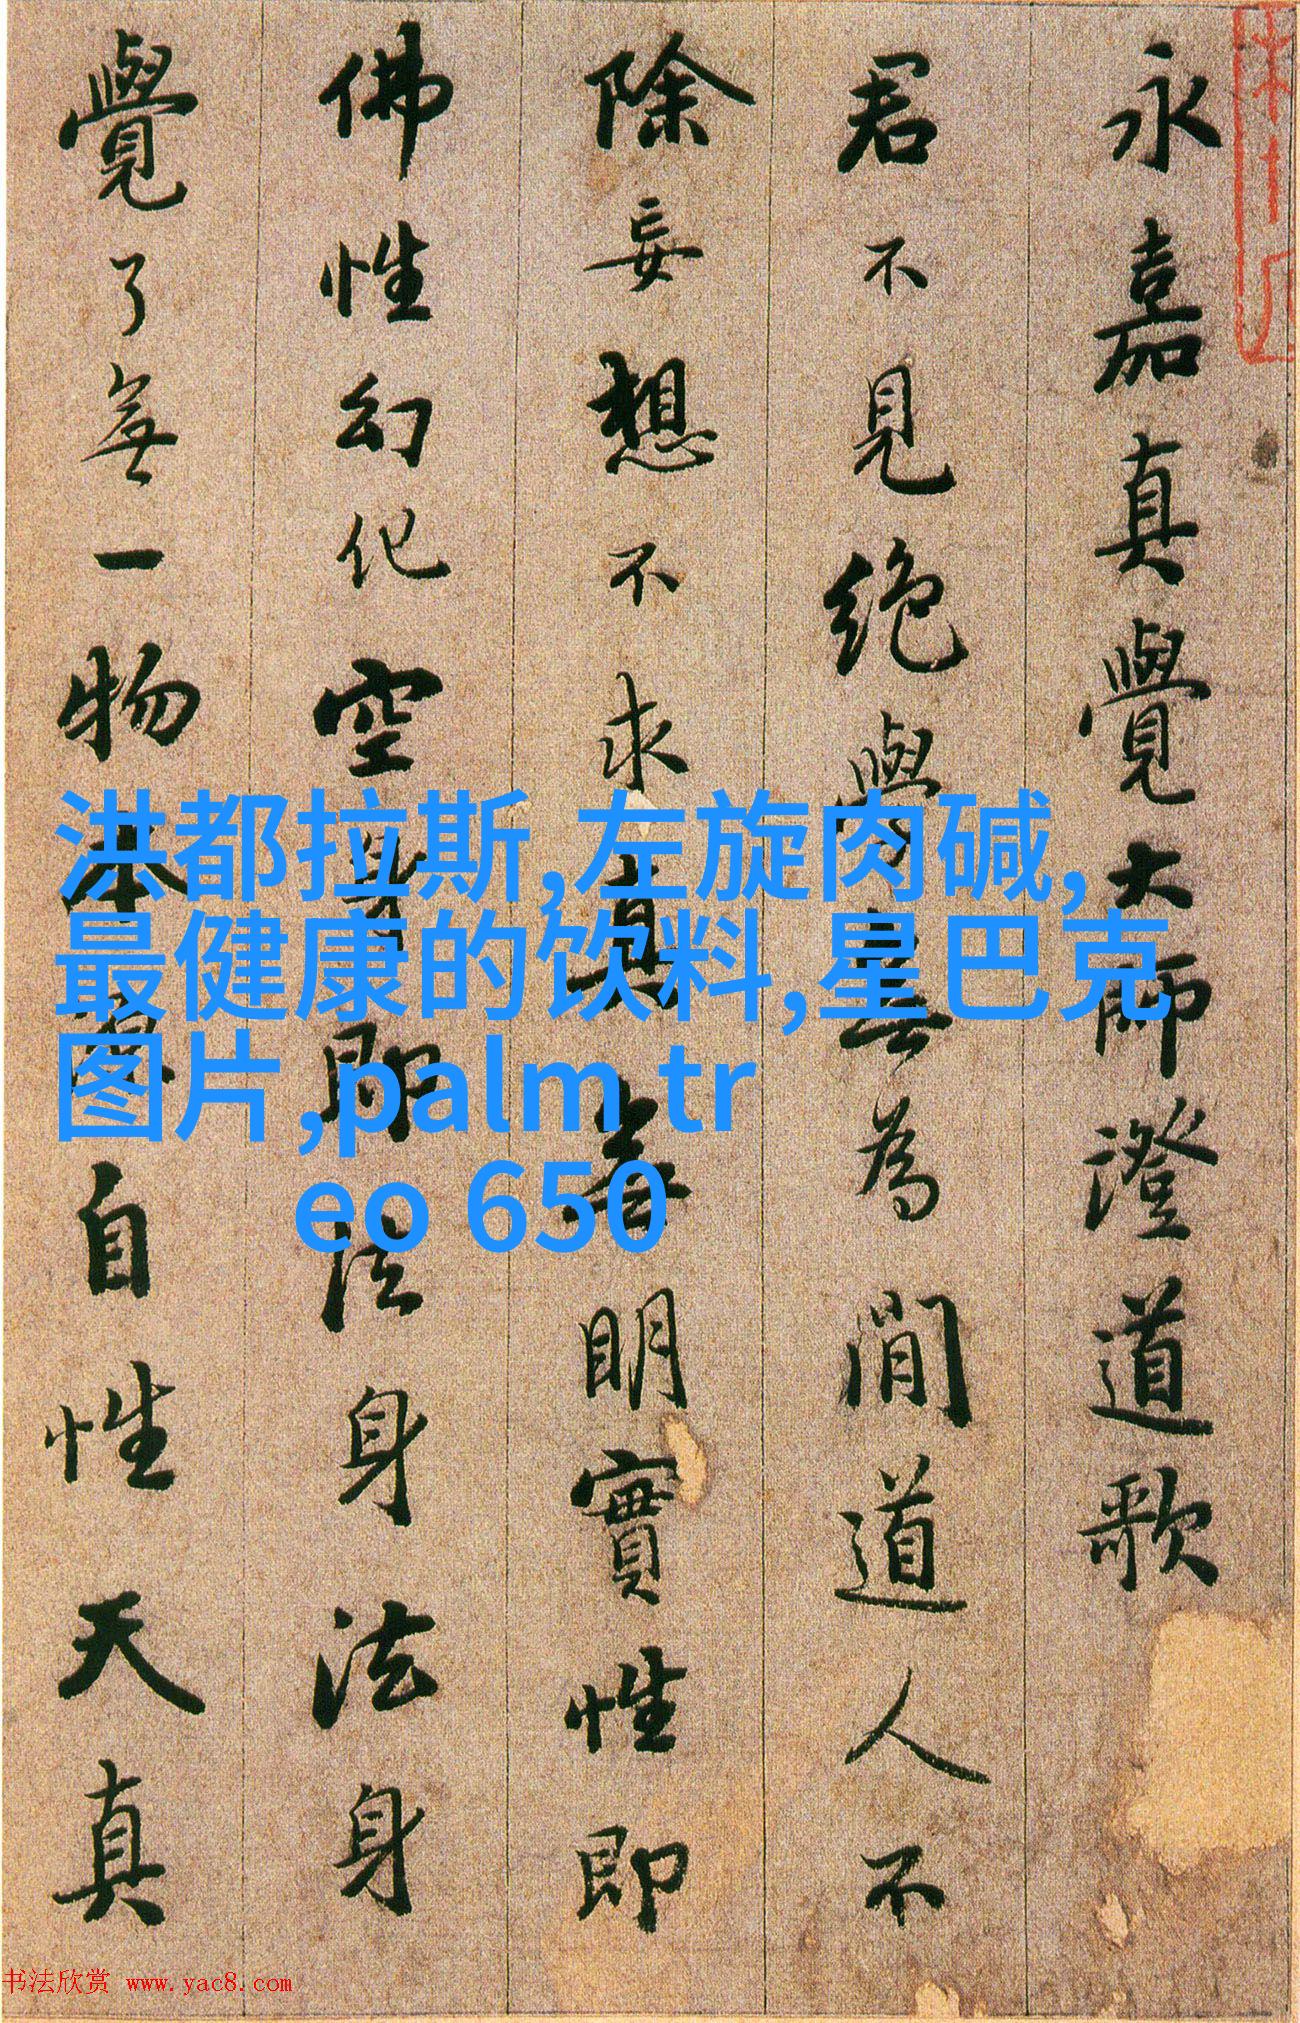 永嘉真覺大師澄道歌
君不見絕學無為閒道人不
除妄想不求真無明實性即
佛性幻化空身即法身法身
覺了無一物本源自性天真
洪都拉斯,左旋肉碱,
最健康的饮料,星巴克
图片,palm tr
eo 650
书法欣赏 www.yac8.com